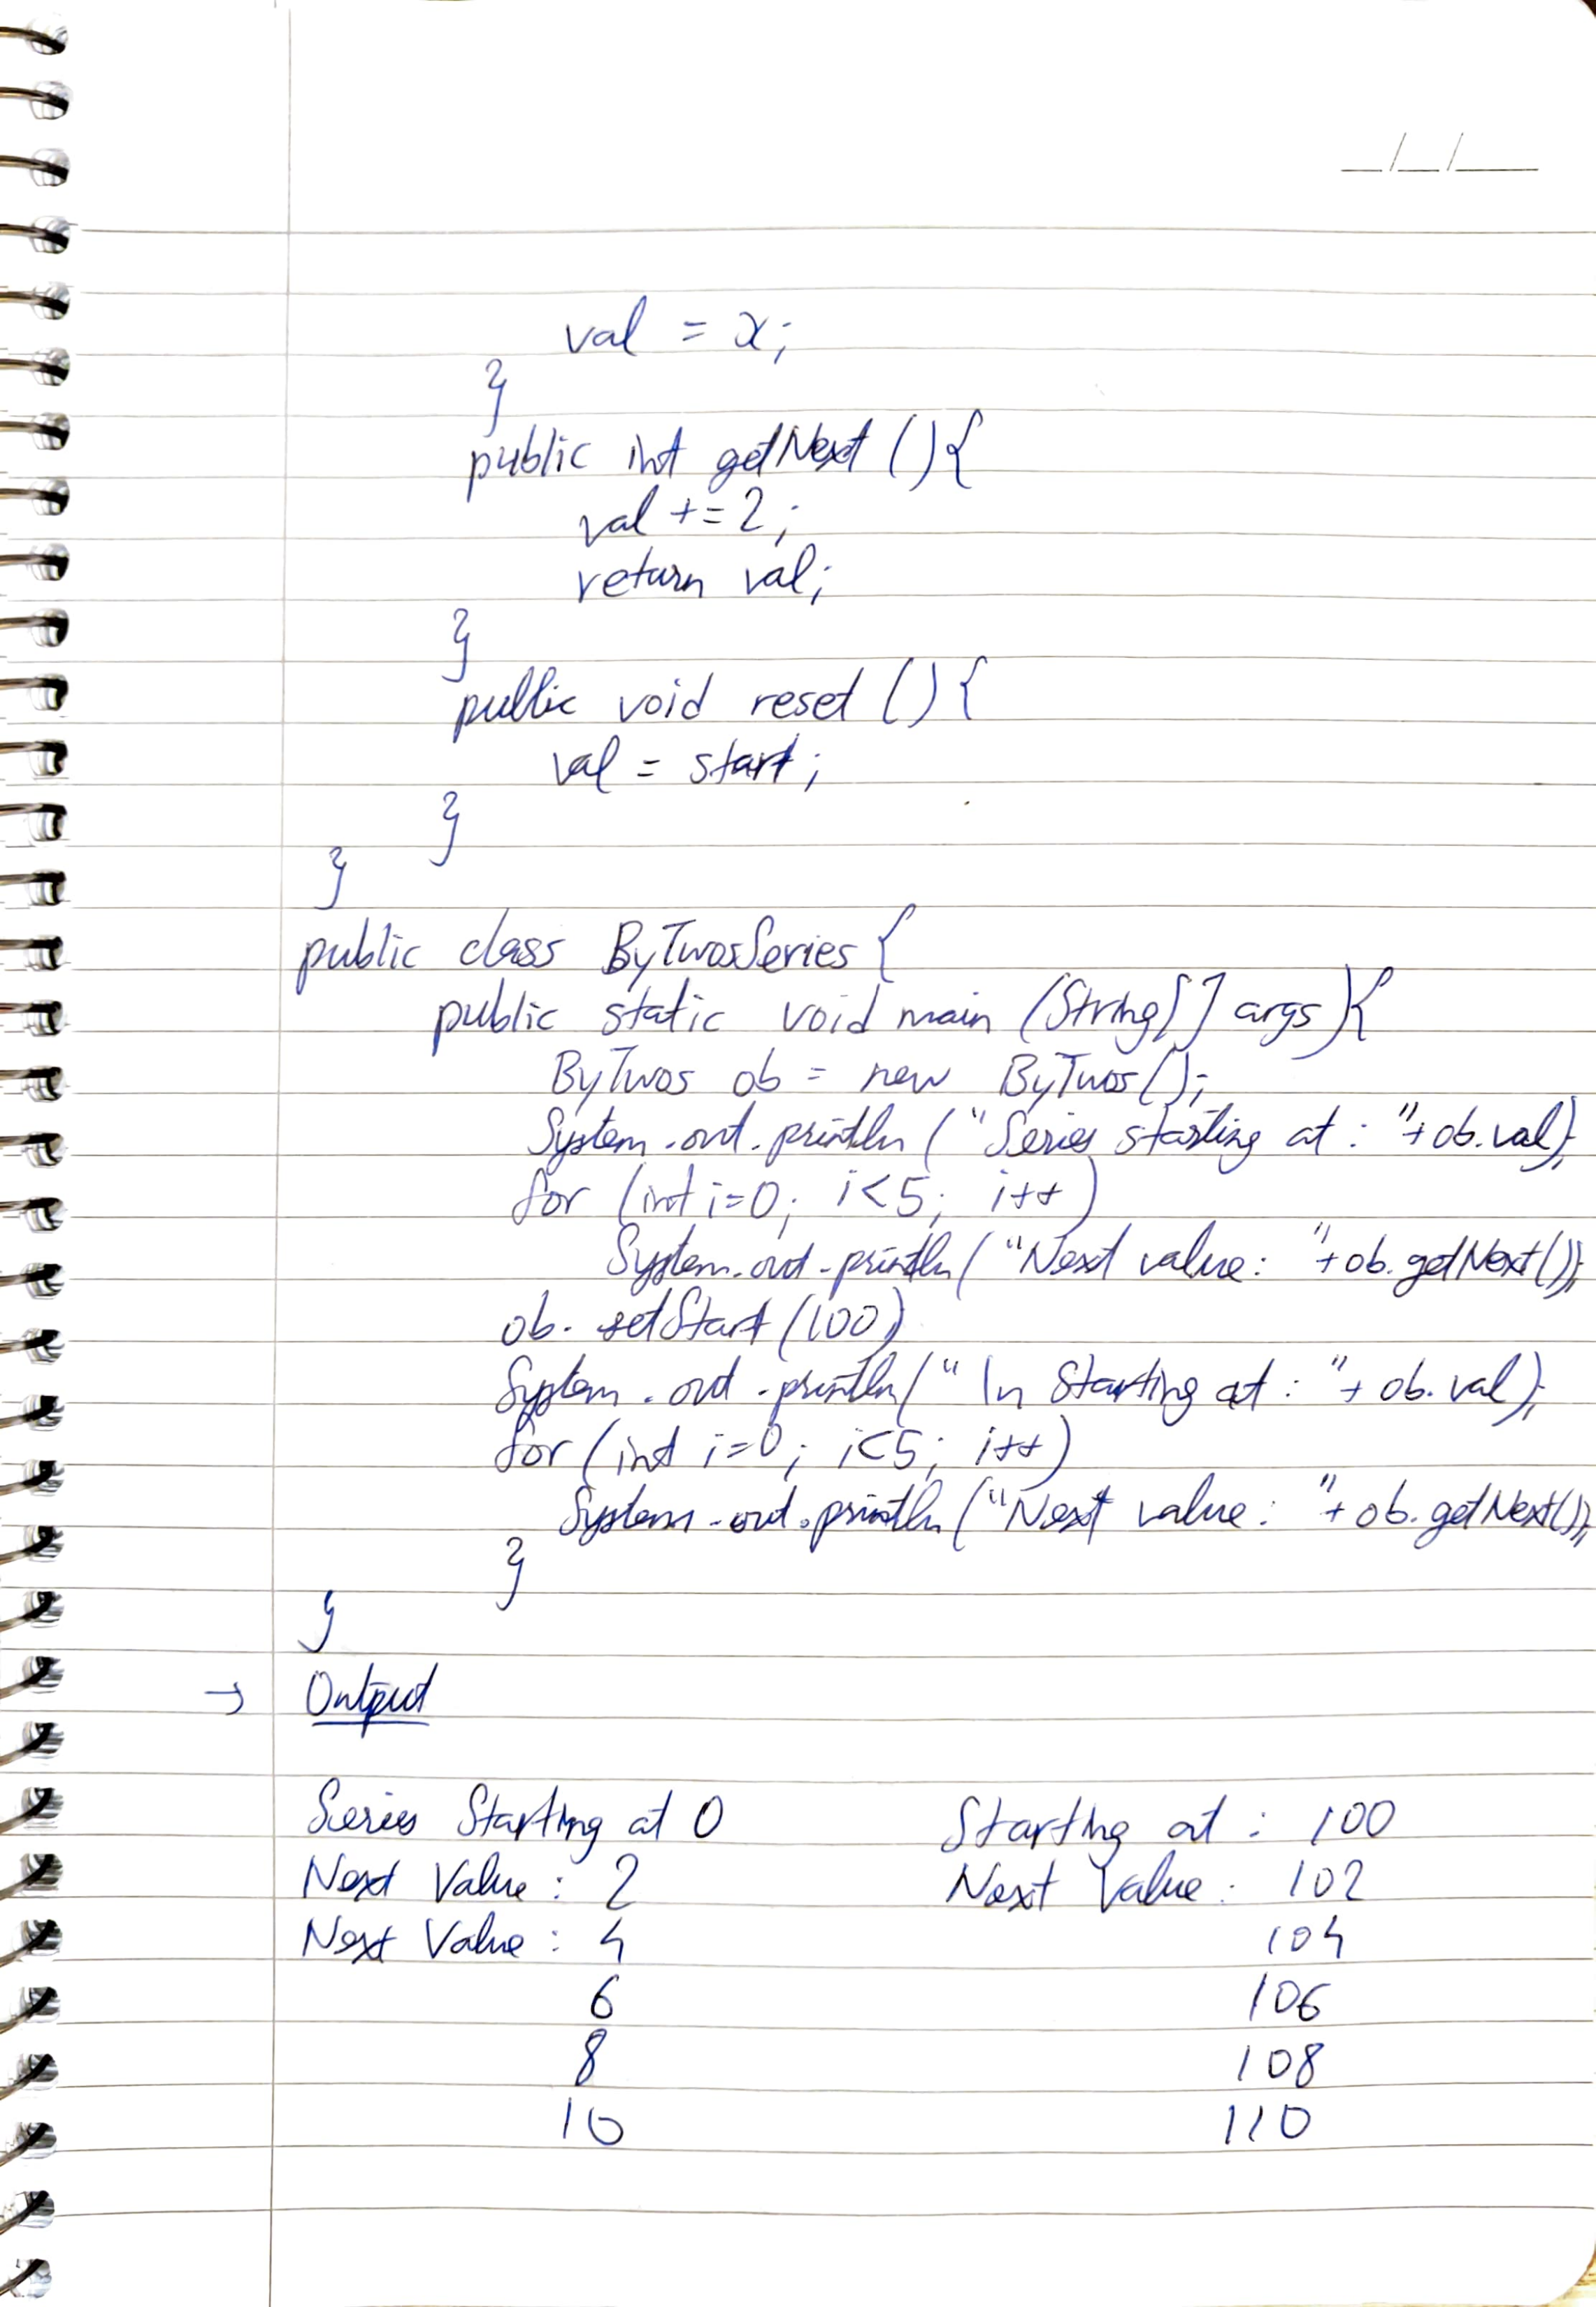 __/__/____
val = x;
}
public int getNext (){
val += 2;
return val;
}
public void reset (){
val = start;
}
}
public class ByTwosSeries {
public static void main (String[] args){
ByTwos ob = new ByTwos();
System.out.println ("Series starting at : "+ ob.val);
for (int i=0; i<5; i++)
System.out.println ("Next value: "+ ob.getNext());
ob. setStart (100)
System.out.println (" \n Starting at : "+ ob.val);
for (int i=0; i<5; i++)
System.out.println ("Next value: "+ ob.getNext());
}
}
→ Output
Series Starting at 0
Next Value : 2
Next Value : 4
6
8
10
Starting at : 100
Next Value : 102
104
106
108
110